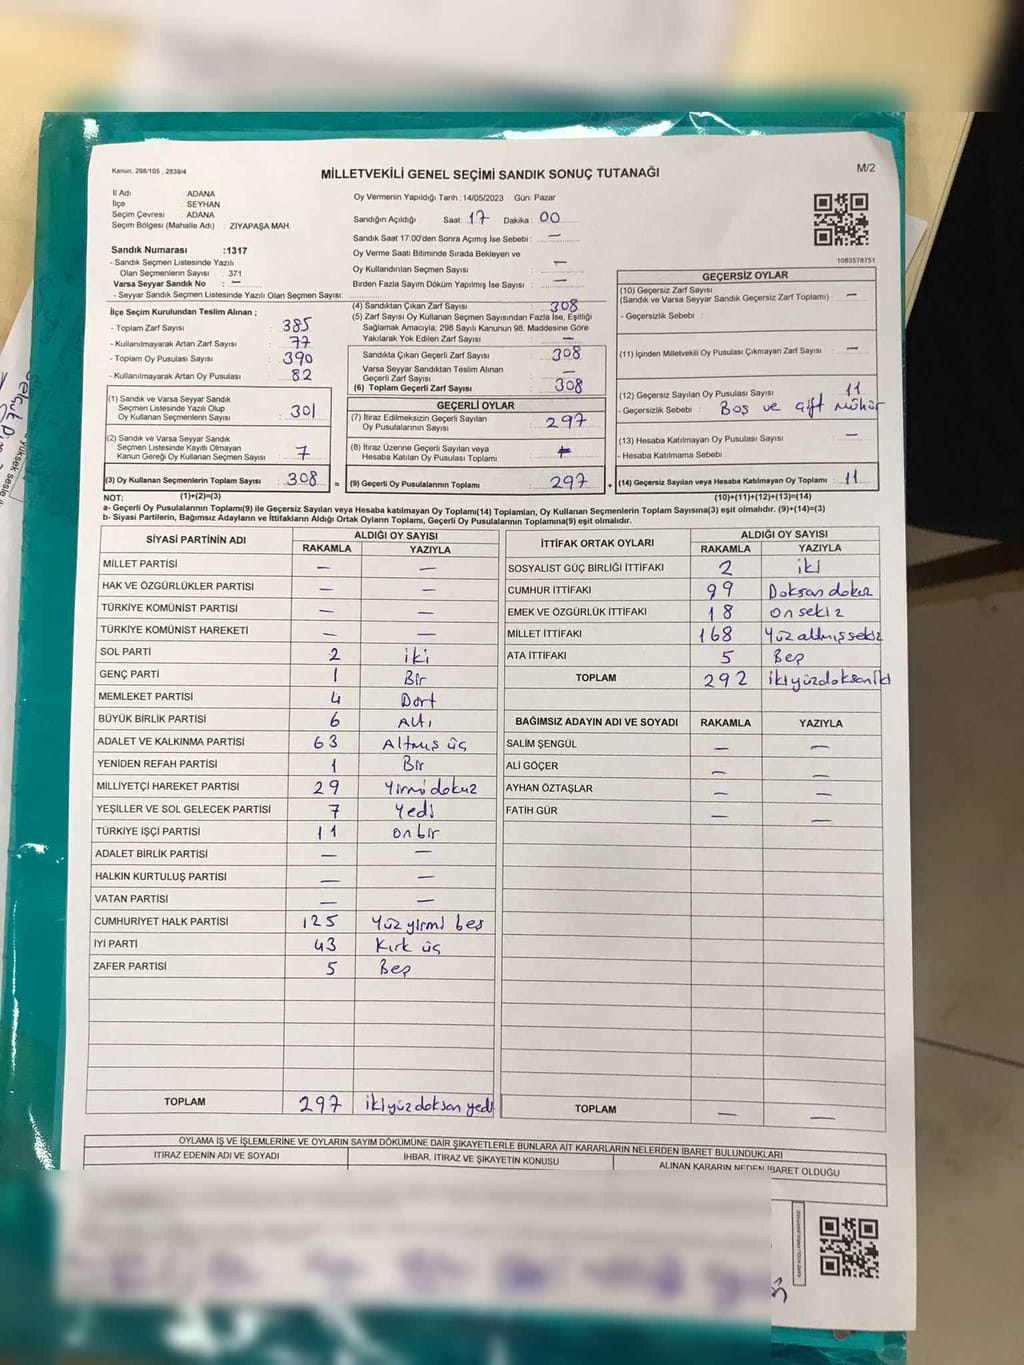 Kanun: 298/105 , 2839/4
M/2
MİLLETVEKİLİ GENEL SEÇİMİ SANDIK SONUÇ TUTANAĞI
İl Adı ADANA
İlçe SEYHAN
Seçim Çevresi ADANA
Seçim Bölgesi (Mahalle Adı) : ZİYAPAŞA MAH.
Sandık Numarası :1317
- Sandık Seçmen Listesinde Yazılı
Olan Seçmenlerin Sayısı : 371
Varsa Seyyar Sandık No : —
- Seyyar Sandık Seçmen Listesinde Yazılı Olan Seçmen Sayısı:
Oy Vermenin Yapıldığı Tarih :14/05/2023 Gün: Pazar
Sandığın Açıldığı Saat: 17 Dakika : 00
Sandık Saat 17:00'den Sonra Açımış İse Sebebi : —
Oy Verme Saati Bitiminde Sırada Bekleyen ve
Oy Kullandırılan Seçmen Sayısı —
Birden Fazla Sayım Döküm Yapılmış İse Sayısı : —
1083578751
İlçe Seçim Kurulundan Teslim Alınan ;
- Toplam Zarf Sayısı : 385
- Kullanılmayarak Artan Zarf Sayısı : 77
- Toplam Oy Pusulası Sayısı : 390
- Kullanılmayarak Artan Oy Pusulası : 82
(1) Sandık ve Varsa Seyyar Sandık
Seçmen Listesinde Yazılı Olup
Oy Kullanan Seçmenlerin Sayısı : 301
(2) Sandık ve Varsa Seyyar Sandık
Seçmen Listesinde Kayıtlı Olmayan
Kanun Gereği Oy Kullanan Seçmen Sayısı : 7
(3) Oy Kullanan Seçmenlerin Toplam Sayısı : 308
(4) Sandıktan Çıkan Zarf Sayısı : 308
(5) Zarf Sayısı Oy Kullanan Seçmen Sayısından Fazla İse, Eşitliği
Sağlamak Amacıyla, 298 Sayılı Kanunun 98. Maddesine Göre
Yakılarak Yok Edilen Zarf Sayısı : —
Sandıkta Çıkan Geçerli Zarf Sayısı : 308
Varsa Seyyar Sandıktan Teslim Alınan
Geçerli Zarf Sayısı : —
(6) Toplam Geçerli Zarf Sayısı : 308
GEÇERLİ OYLAR
(7) İtiraz Edilmeksizin Geçerli Sayılan
Oy Pusulalarının Sayısı : 297
(8) İtiraz Üzerine Geçerli Sayılan veya
Hesaba Katılan Oy Pusulası Toplamı :
= (9) Geçerli Oy Pusulalarının Toplamı : 297
GEÇERSİZ OYLAR
(10) Geçersiz Zarf Sayısı :
(Sandık ve Varsa Seyyar Sandık Geçersiz Zarf Toplamı) —
- Geçersizlik Sebebi :
(11) İçinden Milletvekili Oy Pusulası Çıkmayan Zarf Sayısı : —
(12) Geçersiz Sayılan Oy Pusulası Sayısı : 11
- Geçersizlik Sebebi : Boş ve çift mühür
(13) Hesaba Katılmayan Oy Pusulası Sayısı : —
- Hesaba Katılmama Sebebi :
+ (14) Geçersiz Sayılan veya Hesaba Katılmayan Oy Toplamı : 11
NOT: (1)+(2)=(3) (10)+(11)+(12)+(13)=(14)
a- Geçerli Oy Pusulalarının Toplamı(9) ile Geçersiz Sayılan veya Hesaba Katılmayan Oy Toplamı(14) Toplamları, Oy Kullanan Seçmenlerin Toplam Sayısına(3) eşit olmalıdır. (9)+(14)=(3)
b- Siyasi Partilerin, Bağımsız Adayların ve İttifakların Aldığı Ortak Oyların Toplamı, Geçerli Oy Pusulalarının Toplamına(9) eşit olmalıdır.
SİYASİ PARTİNİN ADI ALDIĞI OY SAYISI
RAKAMLA YAZIYLA
MİLLET PARTİSİ — —
HAK VE ÖZGÜRLÜKLER PARTİSİ — —
TÜRKİYE KOMÜNİST PARTİSİ — —
TÜRKİYE KOMÜNİST HAREKETİ — —
SOL PARTİ 2 iki
GENÇ PARTİ 1 Bir
MEMLEKET PARTİSİ 4 Dört
BÜYÜK BİRLİK PARTİSİ 6 Altı
ADALET VE KALKINMA PARTİSİ 63 Altmış üç
YENİDEN REFAH PARTİSİ 1 Bir
MİLLİYETÇİ HAREKET PARTİSİ 29 Yirmi dokuz
YEŞİLLER VE SOL GELECEK PARTİSİ 7 Yedi
TÜRKİYE İŞÇİ PARTİSİ 11 on bir
ADALET BİRLİK PARTİSİ — —
HALKIN KURTULUŞ PARTİSİ — —
VATAN PARTİSİ — —
CUMHURİYET HALK PARTİSİ 125 Yüz yirmi beş
İYİ PARTİ 43 Kırk üç
ZAFER PARTİSİ 5 Beş
TOPLAM 297 iki yüz doksan yedi
İTTİFAK ORTAK OYLARI ALDIĞI OY SAYISI
RAKAMLA YAZIYLA
SOSYALİST GÜÇ BİRLİĞİ İTTİFAKI 2 iki
CUMHUR İTTİFAKI 99 Doksan dokuz
EMEK VE ÖZGÜRLÜK İTTİFAKI 18 on sekiz
MİLLET İTTİFAKI 168 Yüz altmış sekiz
ATA İTTİFAKI 5 Beş
TOPLAM 292 iki yüz doksan iki
BAĞIMSIZ ADAYIN ADI VE SOYADI RAKAMLA YAZIYLA
SALİM ŞENGÜL — —
ALİ GÖÇER — —
AYHAN ÖZTAŞLAR — —
FATİH GÜR — —
TOPLAM — —
OYLAMA İŞ VE İŞLEMLERİNE VE OYLARIN SAYIM DÖKÜMÜNE DAİR ŞİKAYETLERLE BUNLARA AİT KARARLARIN NELERDEN İBARET BULUNDUKLARI
İTİRAZ EDENİN ADI VE SOYADI İHBAR, İTİRAZ VE ŞİKAYETİN KONUSU ALINAN KARARIN NEDEN İBARET OLDUĞU